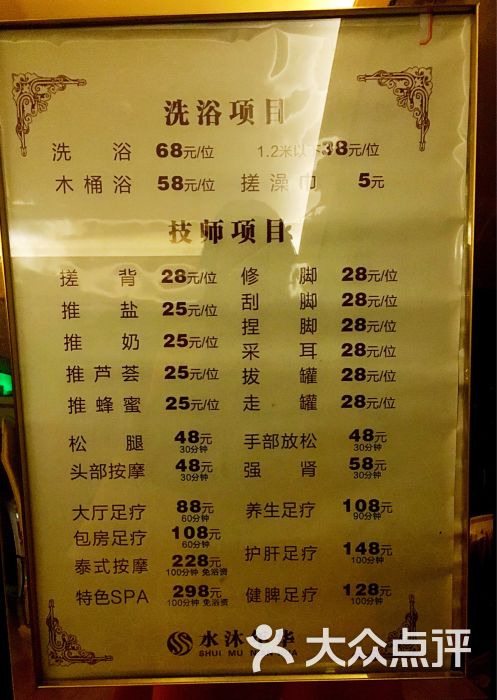 洗浴项目
洗浴 68元/位 1.2米以下38元/位
木桶浴 58元/位 搓澡巾 5元
技师项目
搓背 28元/位 修脚 28元/位
推盐 25元/位 刮脚 28元/位
推奶 25元/位 捏脚 28元/位
采耳 28元/位
推芦荟 25元/位 拔罐 28元/位
推蜂蜜 25元/位 走罐 28元/位
松腿 48元 30分钟 手部放松 48元 30分钟
头部按摩 48元 30分钟 强肾 58元 30分钟
大厅足疗 88元 60分钟 养生足疗 108元 90分钟
包房足疗 108元 60分钟
泰式按摩 228元 100分钟 免浴资 护肝足疗 148元 100分钟
特色SPA 298元 100分钟 免浴资 健脾足疗 128元 100分钟
水沐 华
SHUI MU
大众点评